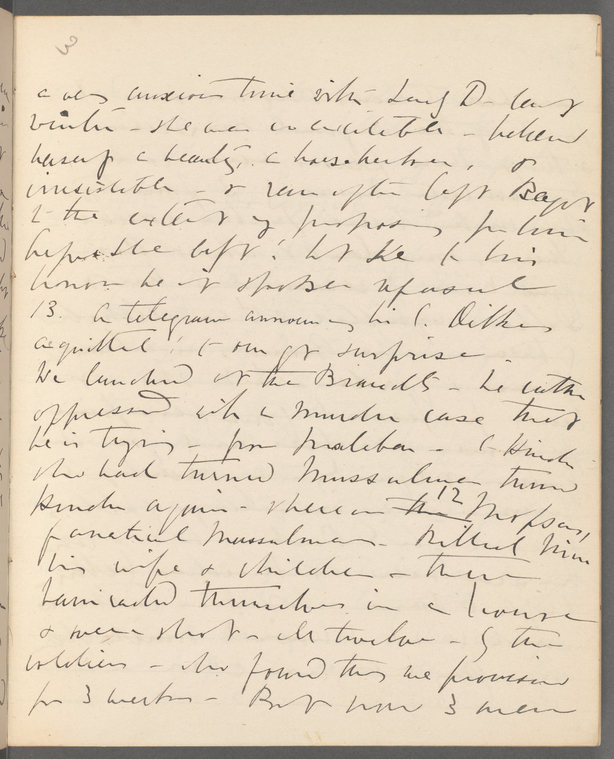 3
a very anxious time with Lady D- last
winter - she was so excitable - believed
herself a beauty, a horsebreaker, &
irresistible - & ran after Capt Bagot
to the extent of proposing for him
before she left! but he to his
honor be it spoken refused
13. A telegram announcing Sir C. Dilke's
acquittal! to our gt surprise.
We lunched at the Brandts - he rather
oppressed with a murder case that
he is trying - from Malabar - a Hindu
who had turned Mussulman turned
Hindu again - whereon the 12 Moplas,
fanatical Mussulmans - killed him
his wife & children - then
barricaded themselves in a house
& were shot - all twelve - by the
soldiers - who found they were provisioned
for 3 weeks - But now 3 men